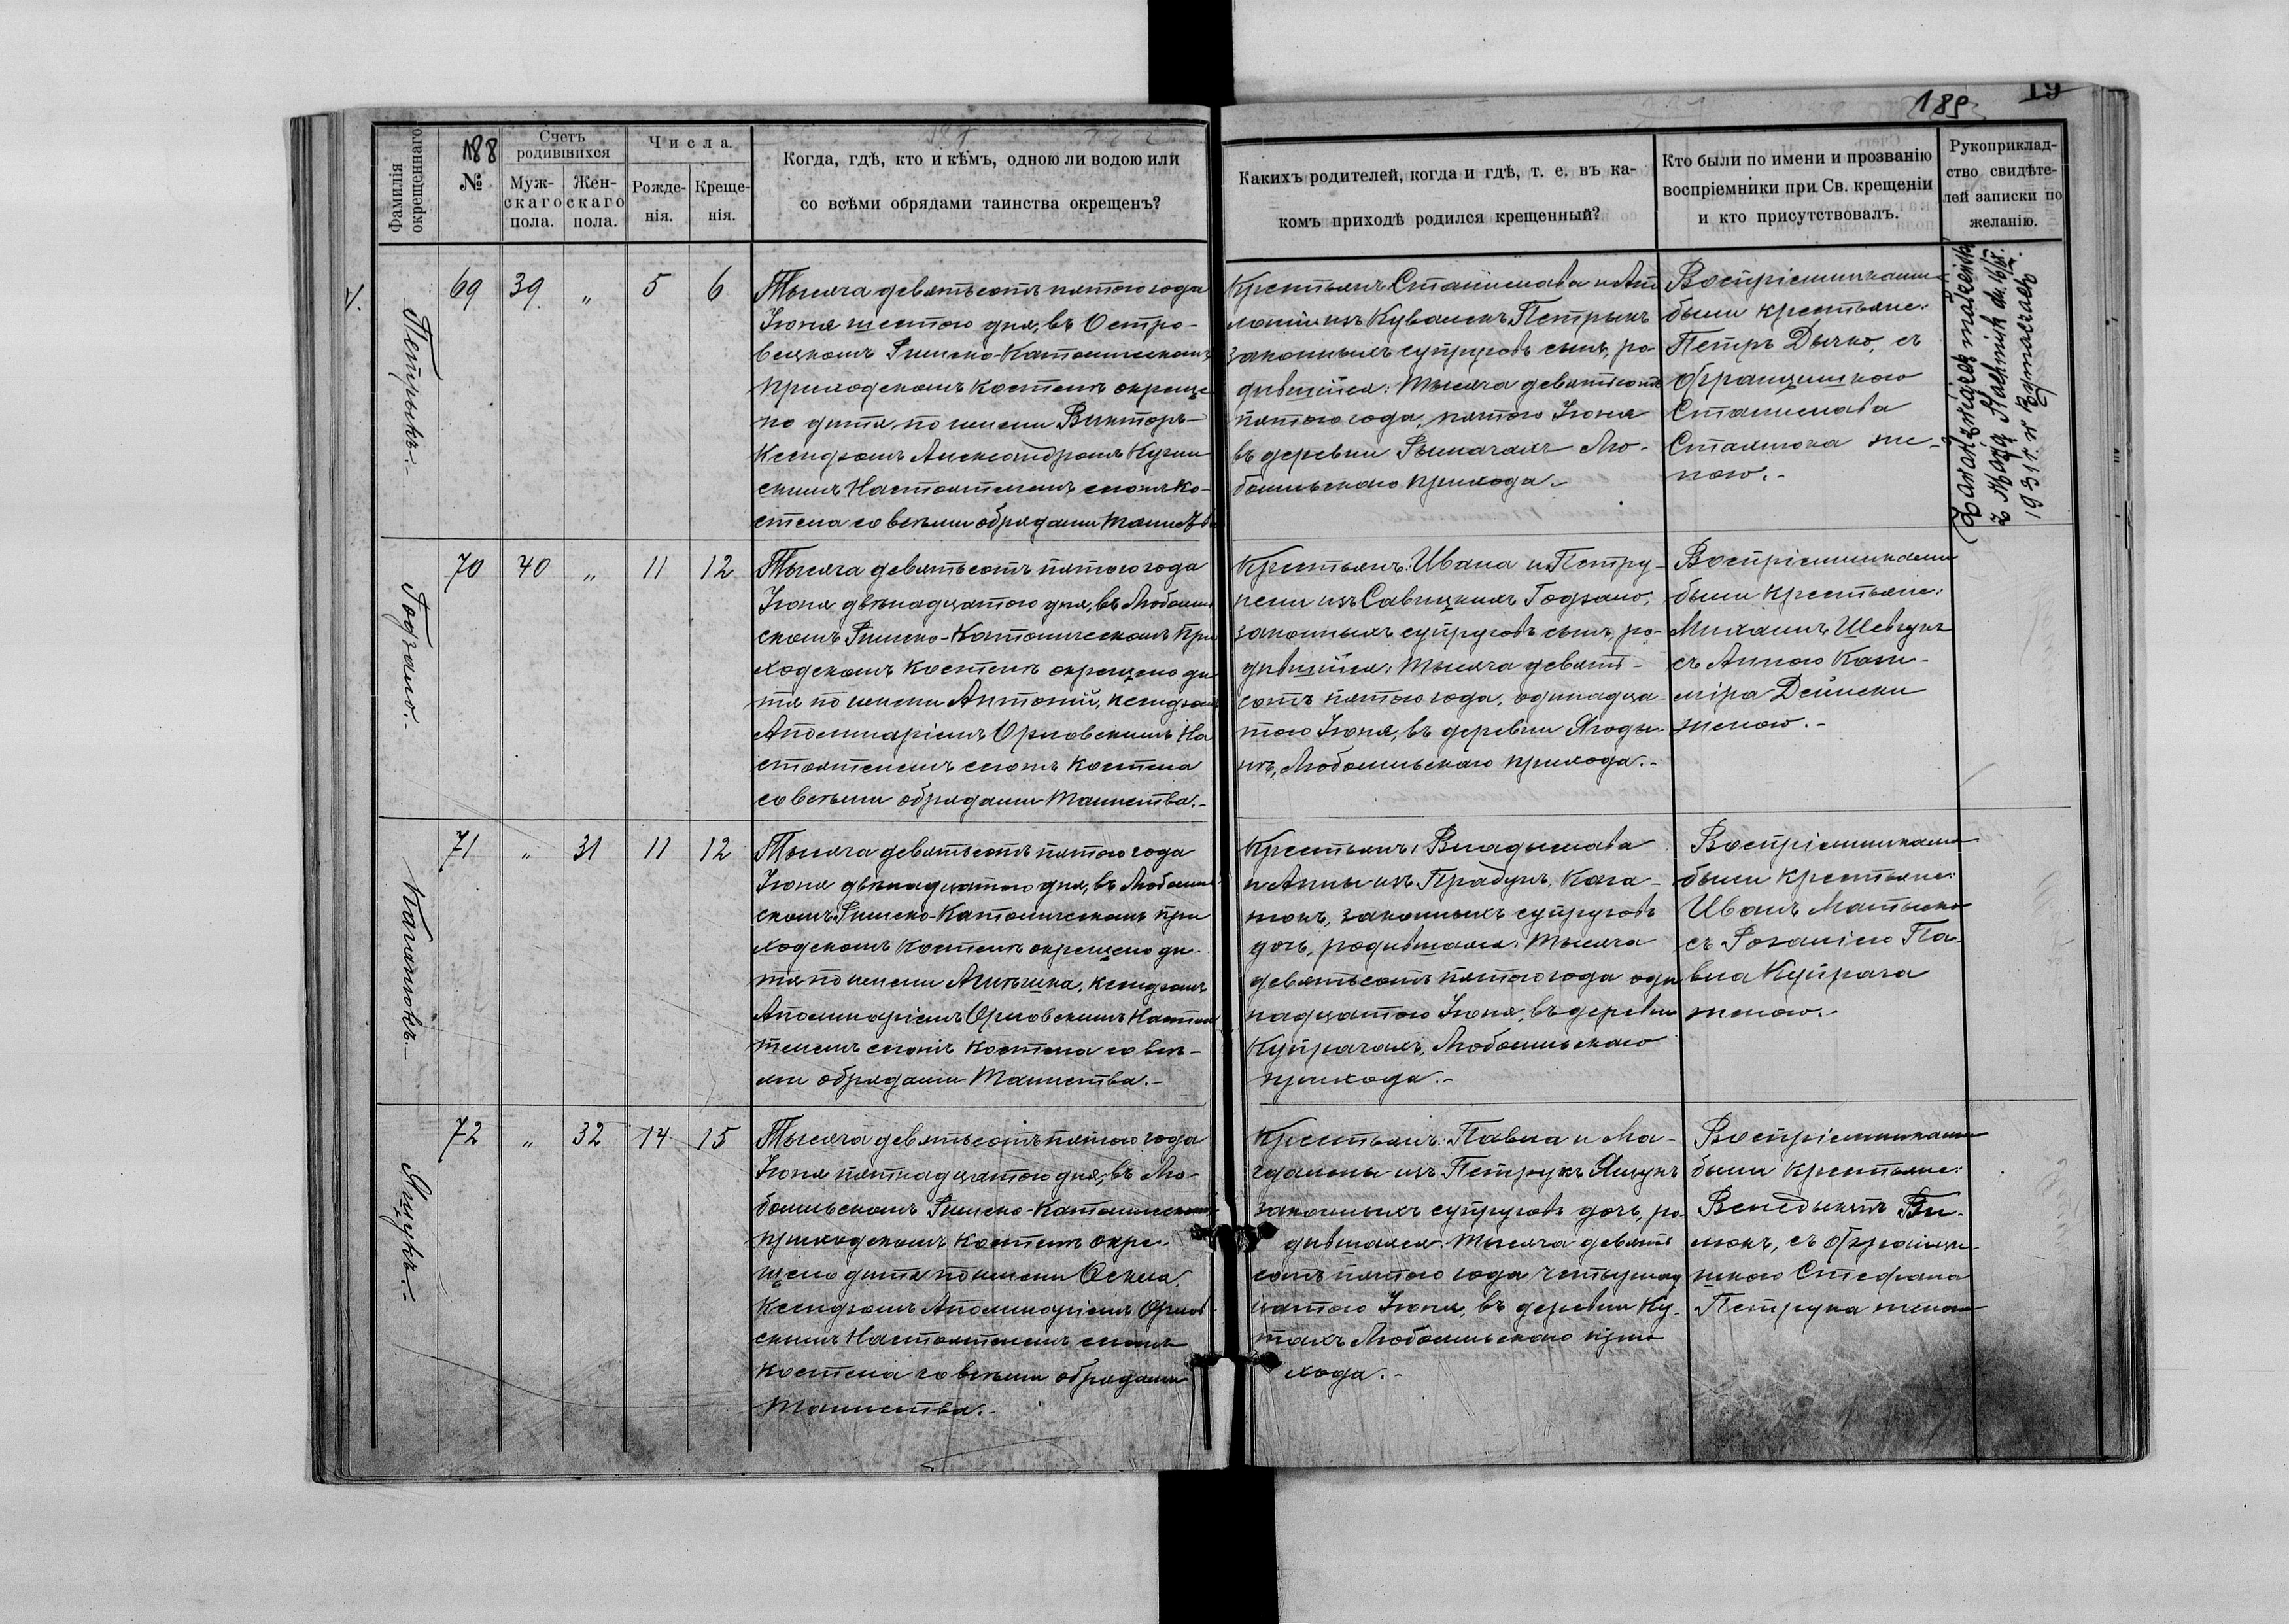 188
189
19
Фамилія окрещеннаго
№
Счетъ родившихся
Муж-скаго пола.
Жен-скаго пола.
Числа.
Рожде-нія.
Креще-нія.
Когда, гдѣ, кто и кѣмъ, одною ли водою или
со всѣми обрядами таинства окрещенъ?
Какихъ родителей, когда и гдѣ, т. е. въ ка-
комъ приходѣ родился крещенный?
Кто были по имени и прозванію
воспріемники при Св. крещеніи
и кто присутствовалъ.
Рукоприклад-
ство свидѣте-
лей записки по
желанію.
V.
Петрыкъ.
69
39
"
5
6
Тысяча девятьсотъ пятого года
Іюня шестого дня, въ Остро-
вецкомъ Римско-Католическомъ
приходскомъ костелѣ окреще-
но дитя, по имени Викторъ-
Ксендзомъ Александромъ
скимъ Настоятелемъ сего ко-
стела со всѣми обрядами Таинства
Крестьянъ Станислава и
изъ Петрыкъ
законныхъ супруговъ сынъ, ро-
дившійся: тысяча девятьсотъ
пятого года, пятого Іюня
въ деревни Рымачахъ Лю-
бомльскаго прихода.-
Воспріемниками
были крестьяне:
Петръ Дычко, съ
Францишкою
Станислава
Сталюка же-
ною.-
Zawarł związek małżeński
z Marją Stachniuk d. 16/II.
1931 r. w Rymaczach
Годзало.-
70
40
"
11
12
Тысяча девятьсотъ пятого года
Іюня двѣнадцатого дня, въ Любомль
скомъ Римско-Католическомъ При
ходскомъ Костелѣ окрещено ди
тя по имени Антоній, ксендзомъ
Аполинаріемъ Орловскимъ На
стоятелемъ сего Костела
со всѣми обрядами Таинства.-
Крестьянъ: Ивана и Петру-
нели изъ Савицкихъ Годзало,
законныхъ супруговъ сынъ, ро-
дившійся: тысяча девять-
сотъ пятого года, одинадца-
того Іюня, въ деревни Ягоди-
нѣ, Любомльскаго прихода.-
Воспріемниками
были крестьяне:
Михаилъ Шевчукъ
съ Анною Кази-
міра Дейнеки
женою.-
Качанюкъ.-
71
"
31
11
12
Тысяча девятьсотъ пятого года
Іюня двѣнадцатого дня, въ Любомль
скомъ Римско-Католическомъ при
ходскомъ Костелѣ окрещено ди-
тя по имени ксендзомъ
Аполинаріемъ Орловскимъ Настоя
телемъ сего Костела со всѣ-
ми обрядами Таинства.-
Крестьянъ: Владыслава
и Анны изъ Кача-
нюкъ, законныхъ супруговъ
дочь, родившаяся: тысяча
девятьсотъ пятого года оди
надцатого Іюня, въ деревни
Купрачахъ, Любомльскаго
прихода.-
Воспріемниками
были крестьяне:
Иванъ
съ Розаліею Па-
вла Купрача
женою.-
Яцукъ.-
72
"
32
14
15
Тысяча девятьсотъ пятого года
Іюня пятнадцатого дня, въ Лю-
бомльскомъ Римско-Католическомъ
приходскомъ костелѣ окре-
щено дитя по имени
Ксендзомъ Аполинаріемъ Орлов-
скимъ Настоятелемъ сего
Костела со всѣми обрядами
Таинства.-
Крестьянъ: Павла и Ма-
гдалены изъ Петрукъ Яцукъ
законныхъ супруговъ дочь, ро-
дившаяся: тысяча девять
сотъ пятого года четырнад
цатого Іюня, въ деревни Ку-
тахъ Любомльскаго при
хода.-
Воспріемниками
были крестьяне:
Венедыктъ
съ Францы-
шкою Стефана
Петрука женою